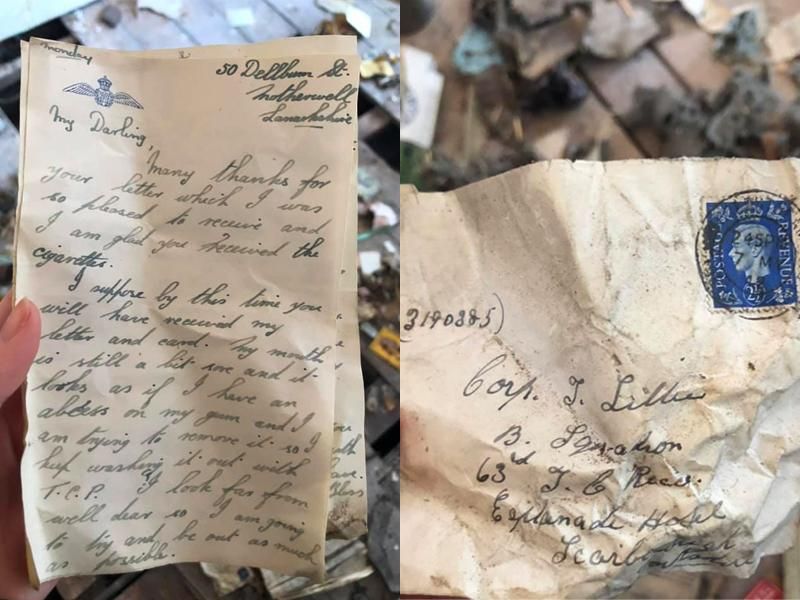 Monday
50 Dellburn St.
Motherwell
Lanarkshire
My Darling,
Many thanks for
your letter which I was
so pleased to receive and
I am glad you received the
cigarettes.
I suppose by this time you
will have received my
letter and card. My mouth
is still a bit sore and it
looks as if I have an
abcess on my gum and I
am trying to remove it so I
keep washing it out with
T.C.P. I look far from
well dear so I am going
to try and be out as much
as possible.
POSTAGE
REVENUE
24 SP
7
2½D
3190385)
Corp. T. Lillie
B. Sqnadron
63rd T. C Recce.
Esplanade Hotel